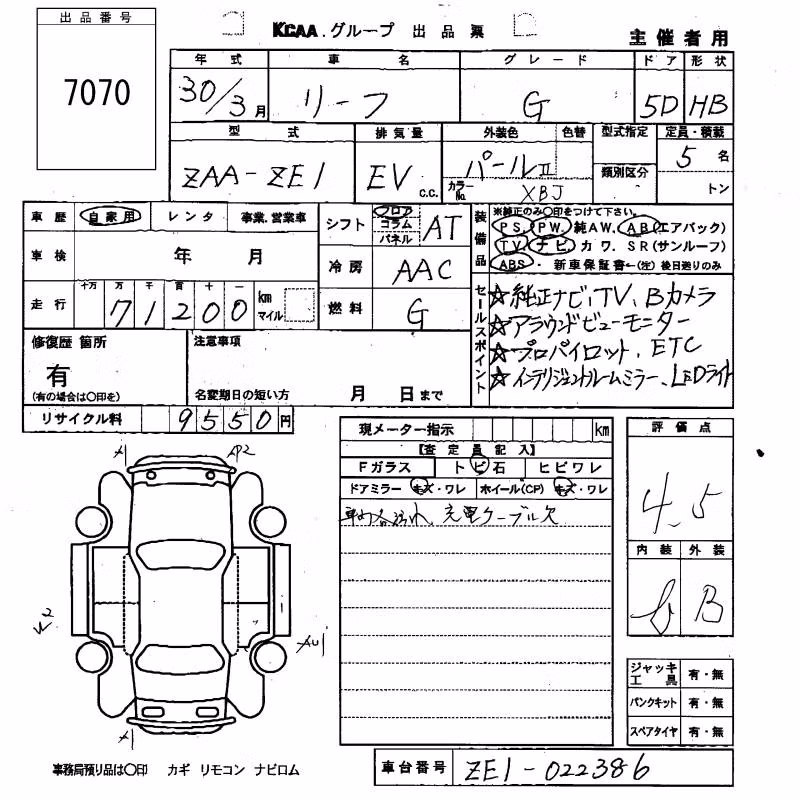 出品番号
7070
KCAA.グループ 出品票
主催者用
年式 車名 グレード ドア 形状
30/3月 リーフ G 5D HB
型式 排気量 外装色 色替 型式指定 定員・積載
ZAA-ZE1 EV c.c. パールⅡ 類別区分 5名
カラーNo. XBJ トン
車歴 自家用 レンタ 事業、営業車
シフト フロア コラム パネル AT
車検 年 月
冷房 AAC
走行 十万 万 千 百 十 一
71200 km マイル
燃料 G
装備品
※純正のみ〇印をつけて下さい。
PS. PW. 純AW. AB(エアバック)
TV. ナビ. カワ. SR(サンルーフ)
ABS. 新車保証書←(注)後日送りのみ
セールスポイント
☆純正ナビ、TV、Bカメラ
☆アラウンドビューモニター
☆プロパイロット、ETC
☆インテリジェントルームミラー、LEDライト
修復歴 箇所
有
(有の場合は〇印を)
注意事項
名変期日の短い方 月 日まで
リサイクル料 9550円
現メーター指示 km
【査定員記入】
Fガラス トビ石 ヒビワレ
ドアミラー キズ・ワレ ホイール(CP) キズ・ワレ
車内各汚れ、充電ケーブル欠
評価点
4.5
内装 外装
B
ジャッキ工具 有・無
パンクキット 有・無
スペアタイヤ 有・無
A1 AP2
A1
事務局預り品は〇印 カギ リモコン ナビロム
車台番号 ZE1-022386